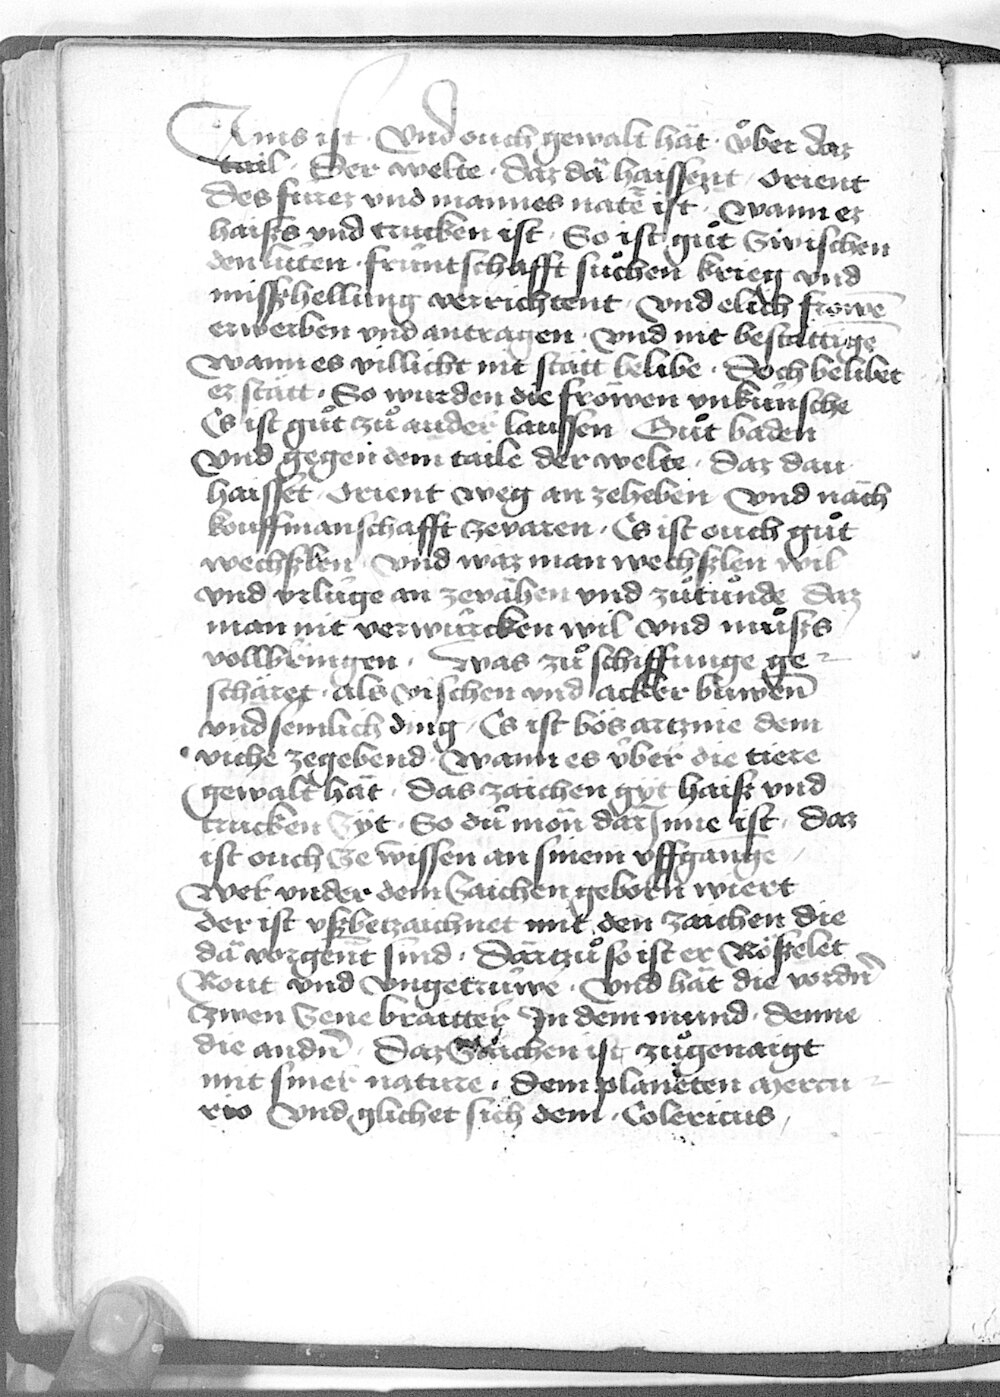 Ains ist · Vnd ouch gewalt hät · v̊ber daz
tail · Der welte · daz dä haissent · orient
des fures vnd mannes natē ist · Wann er
haiss vnd trucken ist · So ist gůt Zwischen
den lüten · früntschafft sůchen krieg vnd
misshellung verrichtent · Vnd elich frowē
erwerben vnd antragen · Vnd nit bestättigē
Wann es villicht nit stätt belibe · Doch belibet
er stätt · So wurden die fröwen vnkünsche
Es ist gůt zů ander lauffen Gůt baden
Vnd gegen dem taile der welte · daz dan
haisset · Orient weg an zeheben · Vnd näch
kouffmanschafft zevaren · Es ist ouch gůt
wechslen · Vnd waz man wechslen wil
vnd vrluge an zevähen vnd zůtůnde daz
man nit verwürcken wil vnd můss
vollbringen · Was zů schiffunge ge
schäret · als vischen vnd acker buwen
vnd semlich ding · Es ist bös artznie dem
viche zegebend · Wann es v̊ber die tiere
gewalt hät · das zaichen gÿt haiss vnd
trucken Zÿt · So dü mön dar Jnne ist · Daz
ist ouch Ze wissen an sinem vffgange
Wer vnder dem Zaichen geborn wiert
der ist vssbezaichnet mit den zaichen die
dä vorgent sind · Dartzů so ist er Rösselet
Rout vnd Vngetrüwe · Vnd hät die vordn̄
zwen Zene braitter Jn dem mund · denne
die andn̄ · Daz Zaichen ist zůgenaigt
mit siner nature · dem planeten Mercu
rio Vnd glichet sich dem · Colericus